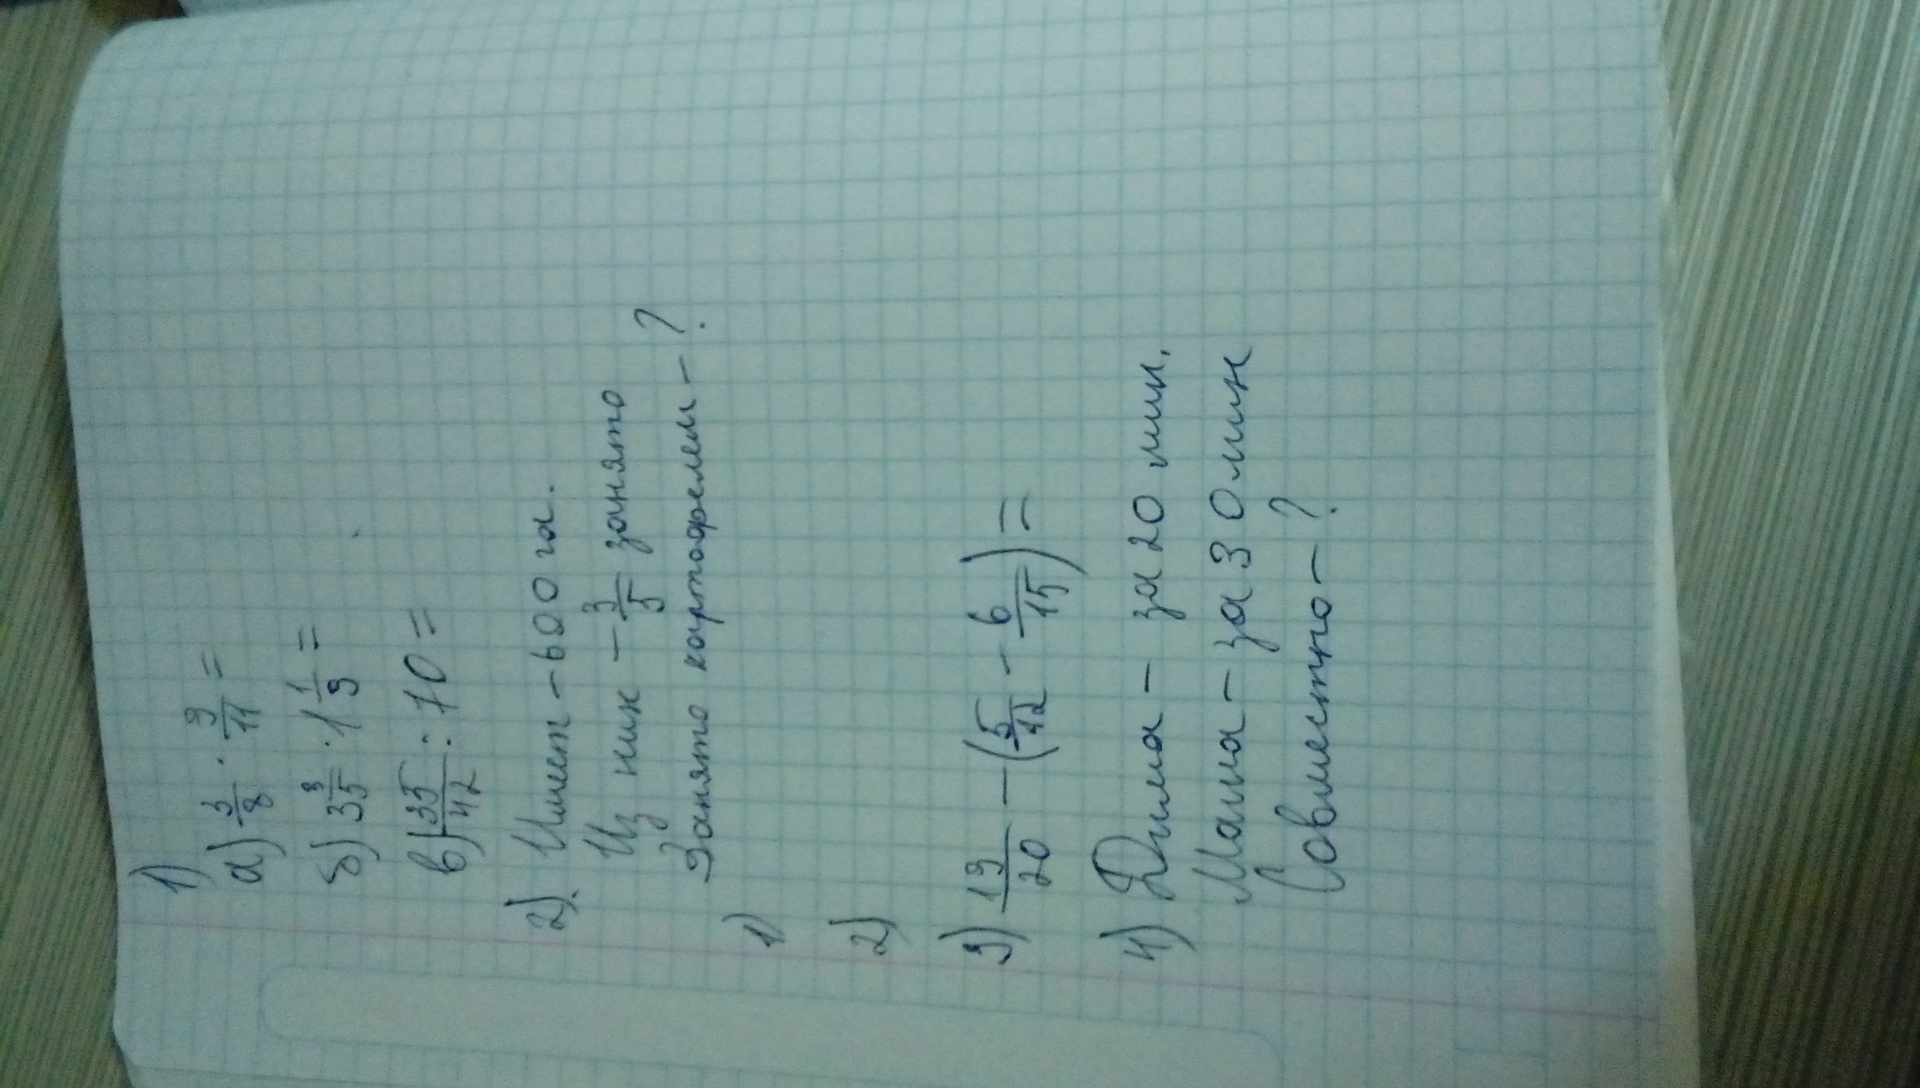 1)
а) 3/8 · 9/11 =
б) 3 3/5 · 1 1/9 =
в) 35/42 : 10 =
2). Имеет – 600 га.
Из них – 3/5 занято
Занято картофелем – ?
1)
2)
3) 19/20 – (5/12 – 6/15) =
4) Дима – за 20 мин.
Маша – за 30 мин
Совместно – ?